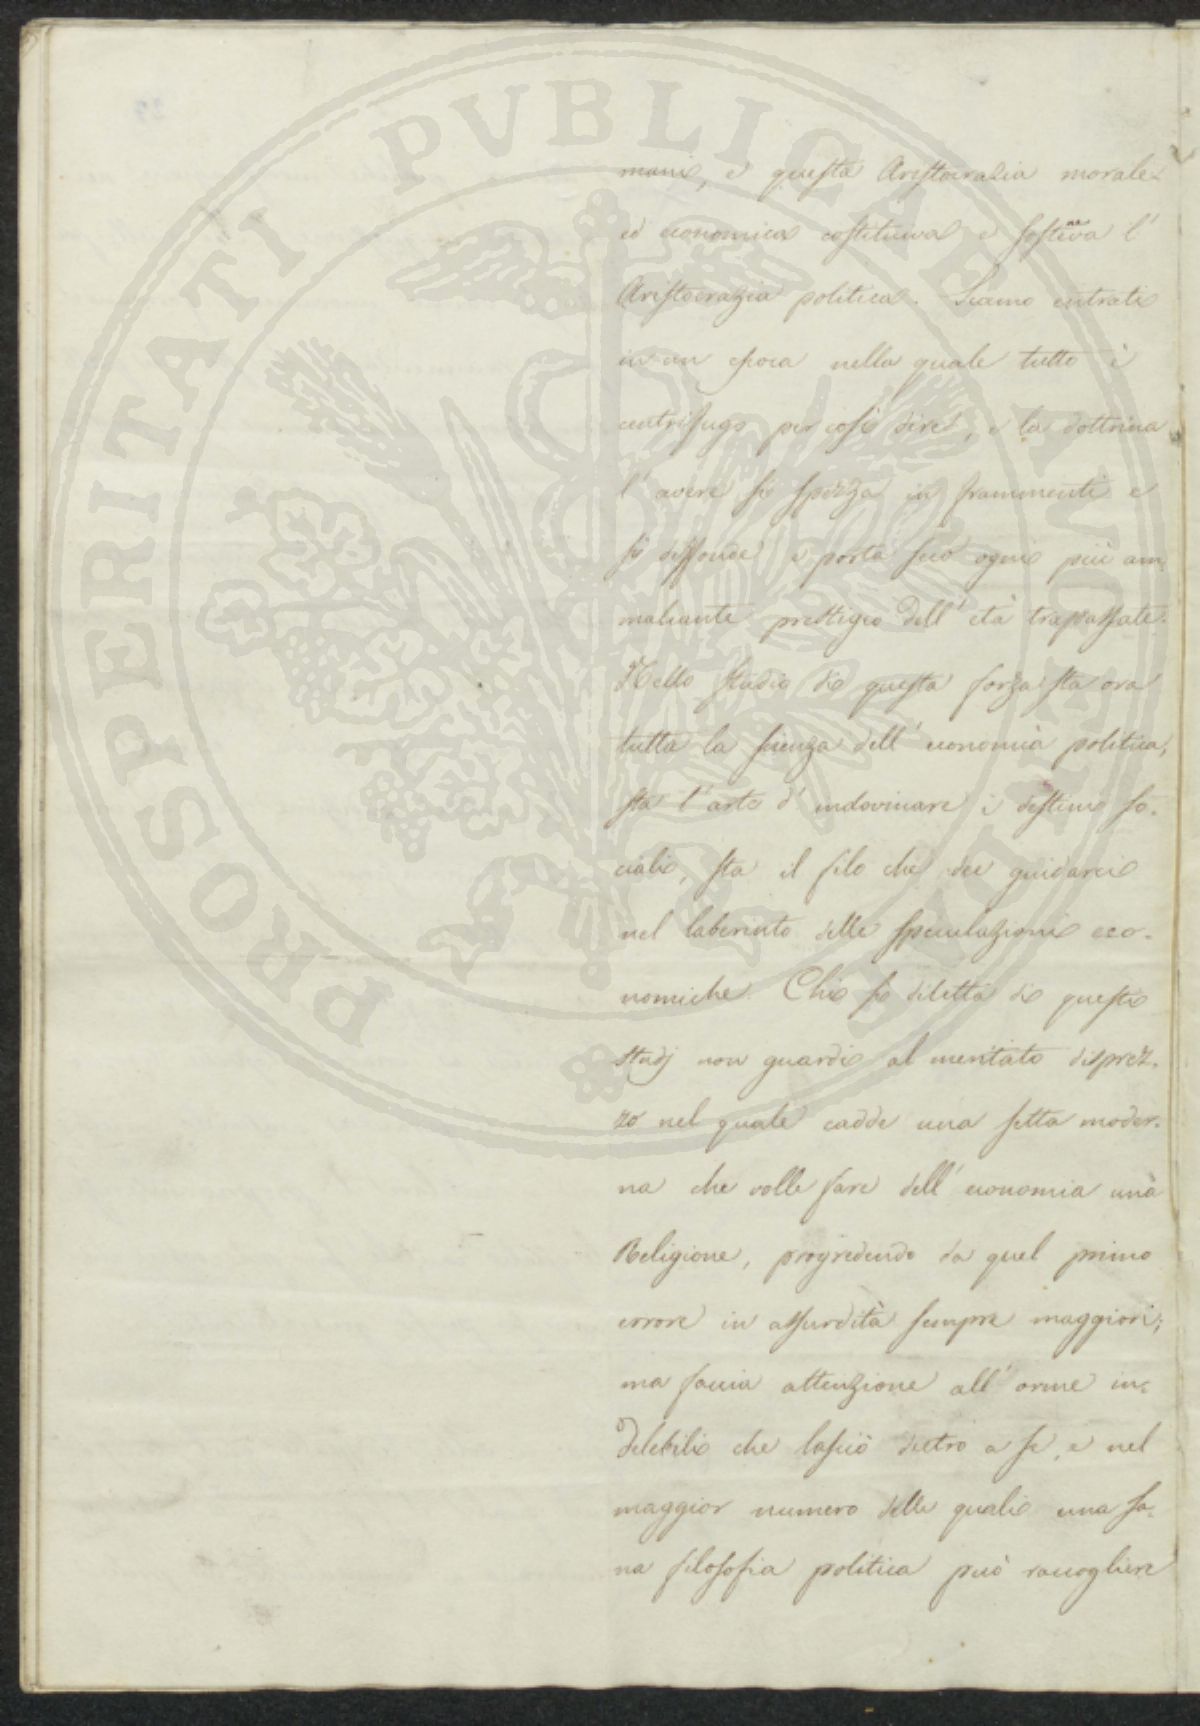 PROSPERITATI PVBLICAE AVGENDAE
mani, e questa Aristocrazia morale
ed economica costituiva e sosteneva l'
Aristocrazia politica. Siamo entrati
in un epoca nella quale tutto è
centrifugo per così dire, e la dottrina
l'avere si spezza in frammenti e
si diffonde e porta seco ogni più am-
maliante prestigio dell'età trapassate.
Nello studio di questa forza sta ora
tutta la scienza dell'economia politica,
sta l'arte d'indovinare i destini so-
ciali, sta il filo che dee guidarci
nel laberinto delle speculazioni eco-
nomiche. Chi si diletta di questi
studj non guardi al meritato disprez-
zo nel quale cadde una setta moder-
na che volle fare dell'economia una
Religione, progredendo da quel primo
errore in assurdità sempre maggiori;
ma faccia attenzione all'orme in-
delebili che lasciò dietro a se, e nel
maggior numero delle quali una sa-
na filosofia politica può raccogliere